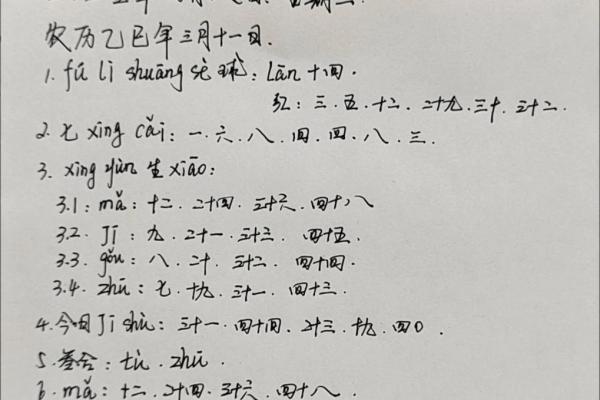 农历乙巳年三月十一日.
1. fú lì shuāng sè 球: Lān 十四.
红: 三. 五. 十二. 二十九. 三十. 三十二.
2. 七 xīng cǎi: 一. 六. 八. 四. 四. 八. 三.
3. xìng yùn 生 xiāo:
3.1: mǎ: 十二. 二十四. 三十六. 四十八
3.2. Jī: 九. 二十一. 三十三. 四十五.
3.3. gǒu: 八. 二十. 三十二. 四十四.
3.4. zhū: 七. 十九. 三十一. 四十三.
4. 今日 Jī shù: 三十一. 四十四. 二十三. 十九. 四0.
5. 合: tù. zhū.
6. mǎ: 十二. 二十四. 三十六. 四十八.